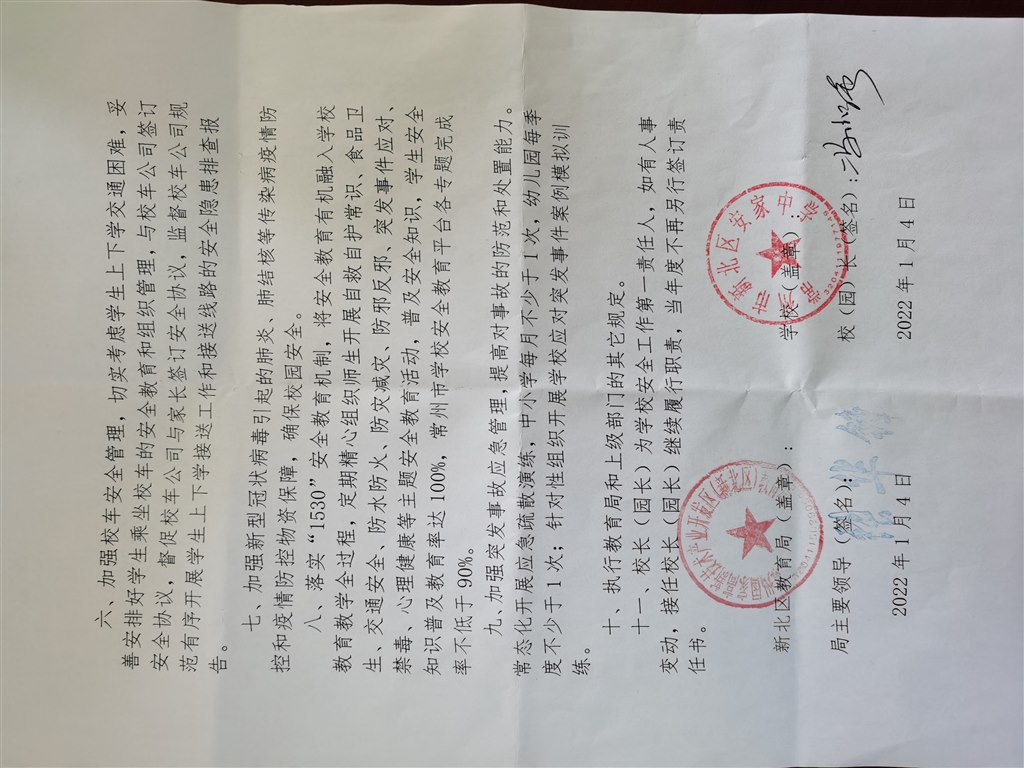 六、加强校车安全管理，切实考虑学生上下学交通困难，妥
善安排好学生乘坐校车的安全教育和组织管理，与校车公司签订
安全协议，督促校车公司与家长签订安全协议，监督校车公司规
范有序开展学生上下学接送工作和接送线路的安全隐患排查报
告。
七、加强新型冠状病毒引起的肺炎、肺结核等传染病疫情防
控和疫情防控物资保障，确保校园安全。
八、落实“1530”安全教育机制，将安全教育有机融入学校
教育教学全过程，定期精心组织师生开展自救自护常识、食品卫
生、交通安全、防水防火、防灾减灾、防邪反邪、突发事件应对、
禁毒、心理健康等主题安全教育活动，普及安全知识，学生安全
知识普及教育率达 100%，常州市学校安全教育平台各专题完成
率不低于 90%。
九、加强突发事故应急管理，提高对事故的防范和处置能力。
常态化开展应急疏散演练，中小学每月不少于 1 次，幼儿园每季
度不少于 1 次；针对性组织开展学校应对突发事件案例模拟训
练。
十、执行教育局和上级部门的其它规定。
十一、校长（园长）为学校安全工作第一责任人，如有人事
变动，接任校长（园长）继续履行职责，当年度不再另行签订责
任书。
新北区教育局（盖章）： 学校（盖章）：
常州市新北区安家中学
局主要领导（签名）： 校（园）长（签名）：
2022 年 1 月 4 日 2022 年 1 月 4 日